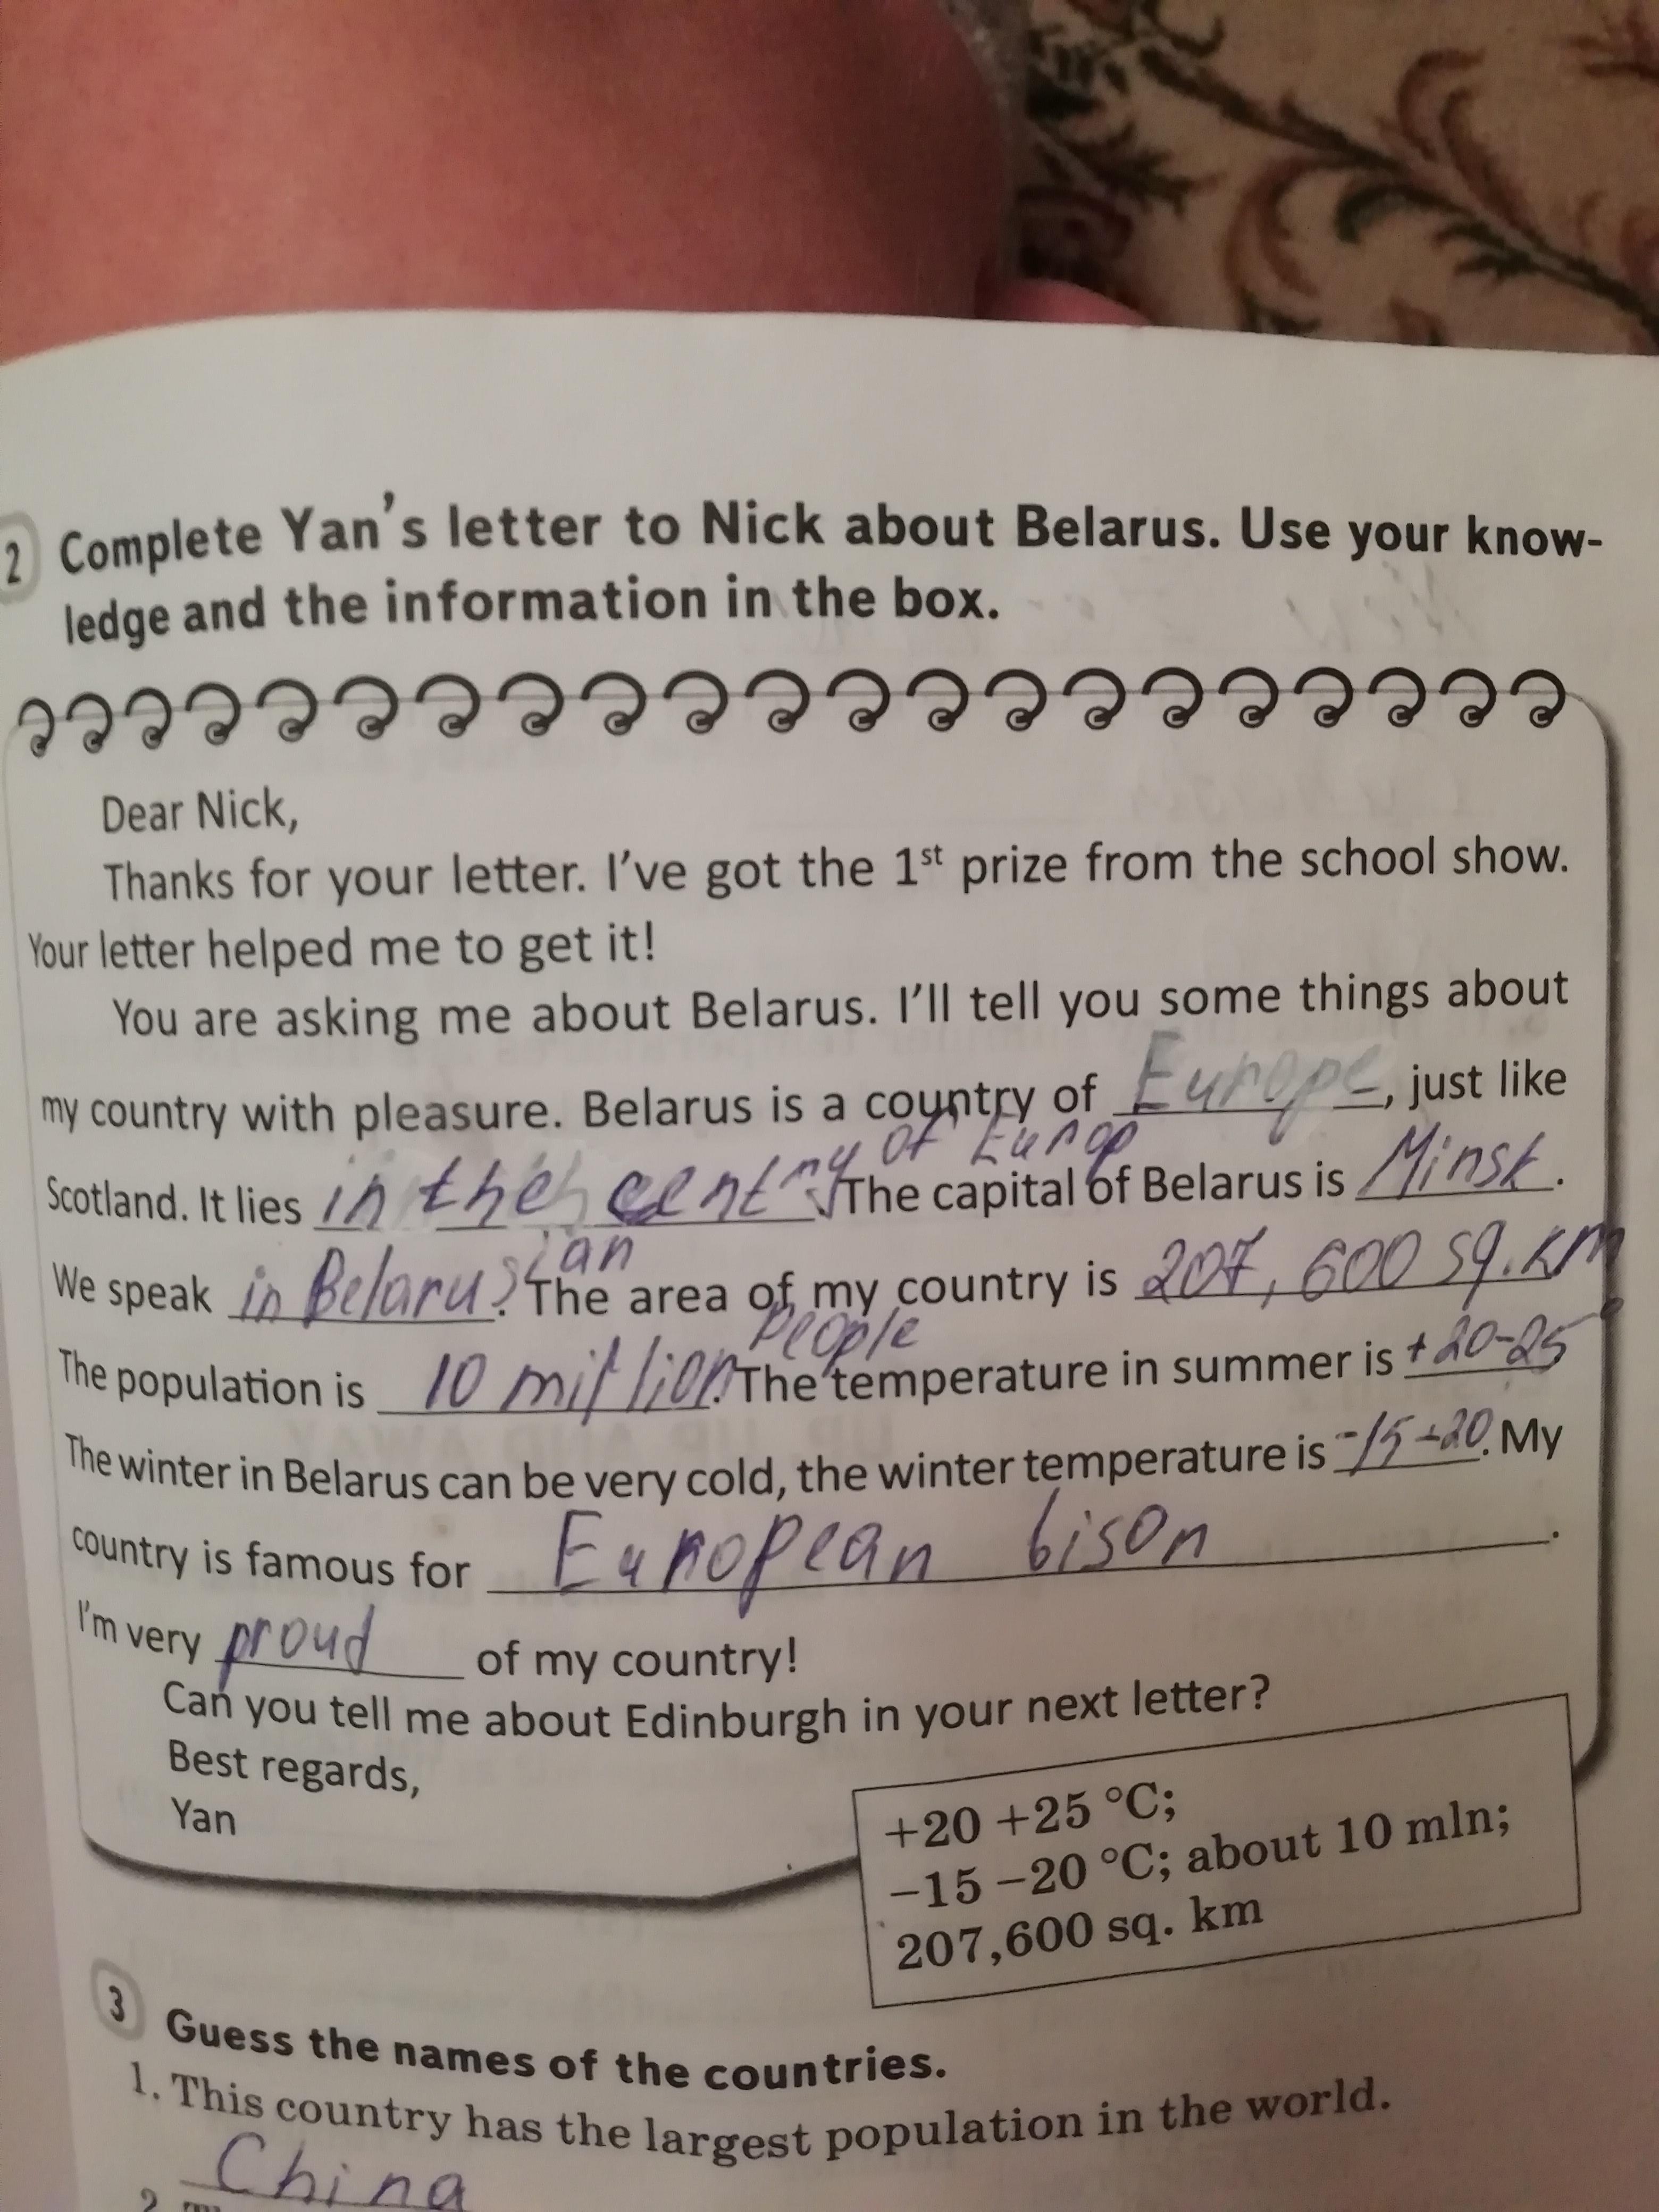 2 Complete Yan's letter to Nick about Belarus. Use your know-
ledge and the information in the box.
Dear Nick,
Thanks for your letter. I've got the 1st prize from the school show.
Your letter helped me to get it!
You are asking me about Belarus. I'll tell you some things about
my country with pleasure. Belarus is a country of Europe, just like
Scotland. It lies in the centry of Europ. The capital of Belarus is Minsk.
We speak in Belarusian. The area of my country is 207,600 sq. km
The population is 10 million people. The temperature in summer is +20-25°
The winter in Belarus can be very cold, the winter temperature is -15-20. My
country is famous for European bison.
I'm very proud of my country!
Can you tell me about Edinburgh in your next letter?
Best regards,
Yan
+20 +25 °C;
–15 –20 °C; about 10 mln;
207,600 sq. km
3 Guess the names of the countries.
1. This country has the largest population in the world.
China
2.